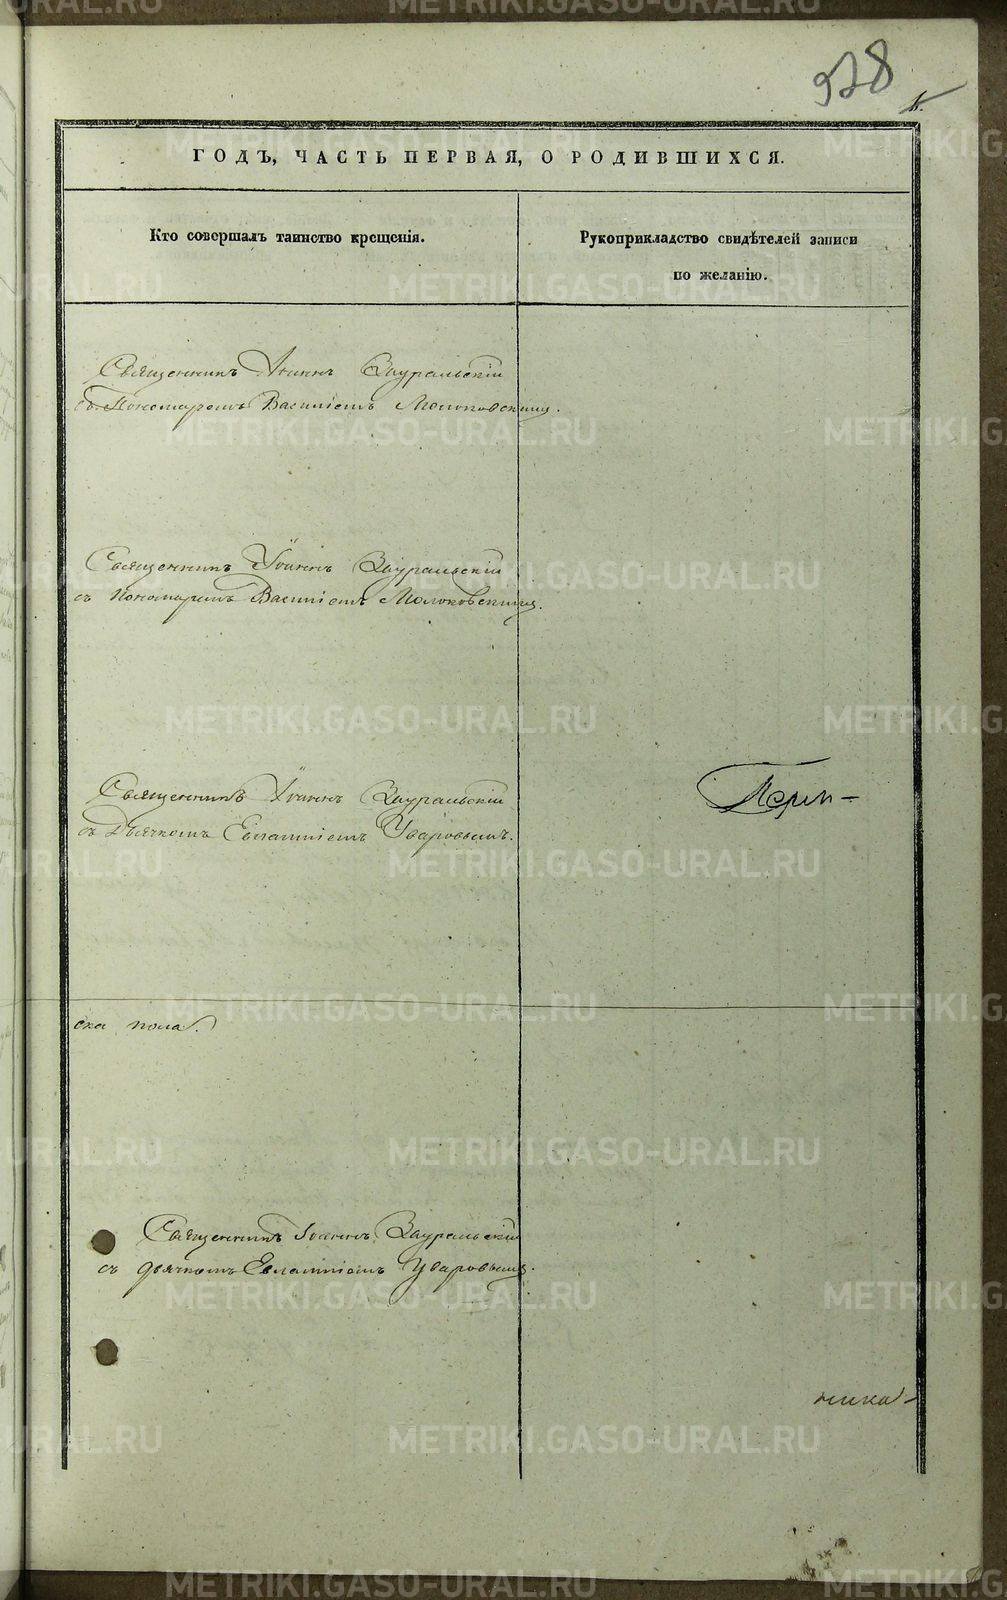 928
ГОДЪ, ЧАСТЬ ПЕРВАЯ, О РОДИВШИХСЯ.
Кто совершалъ таинство крещенія.
Рукоприкладство свидѣтелей записи
по желанію.
Священникъ Іоаннъ Зауральскій
съ Пономаремъ Василіемъ Молоковскимъ.
Священникъ Іоаннъ Зауральскій
съ Пономаремъ Василіемъ Молоковскимъ.
Священникъ Іоаннъ Зауральскій
съ Дьячкомъ Евлампіемъ Уваровымъ.
Перм-
ска пола.
Священникъ Іоаннъ Зауральскій
съ дьячкомъ Евлампіемъ Уваровымъ.
ника-
METRIKI.GASO-URAL.RU